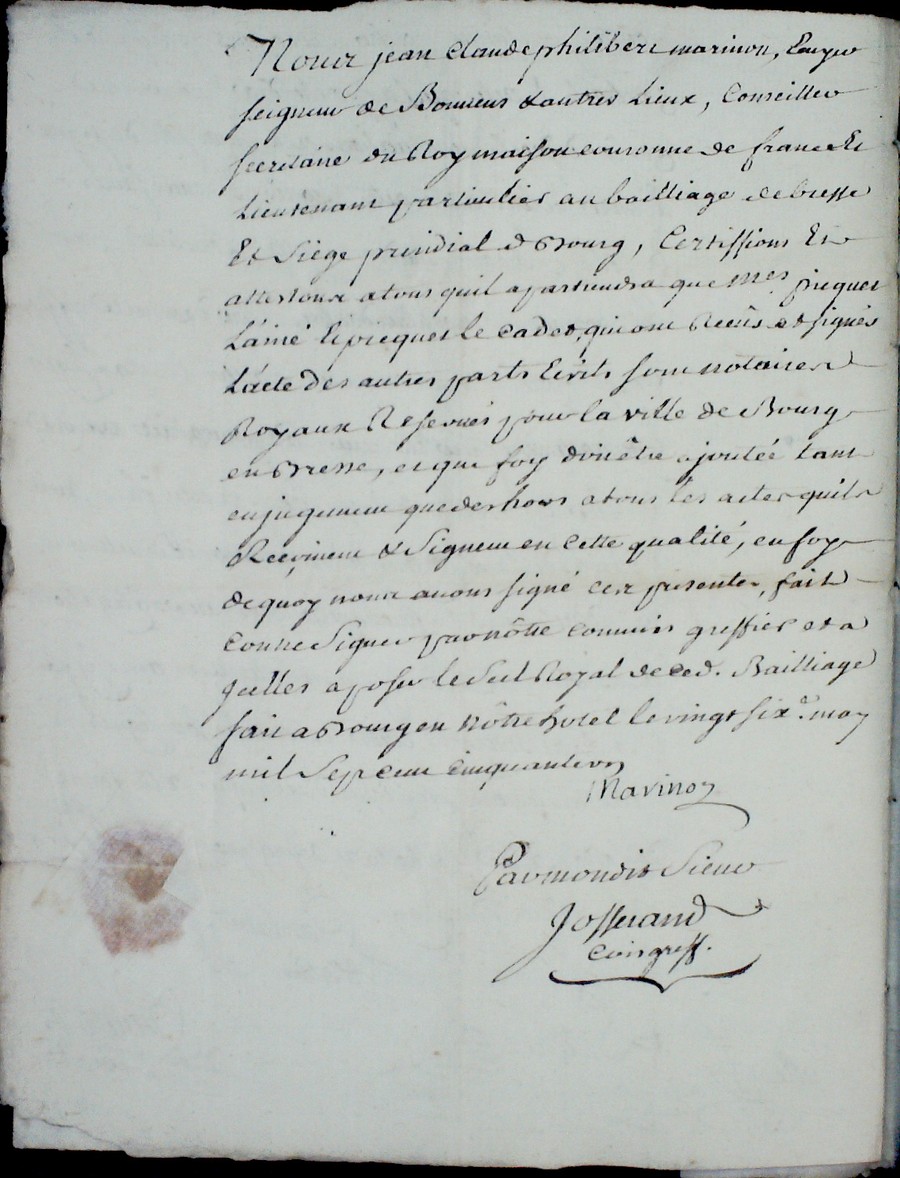 Nous jean Claude philibert marinon, Ecuyer
seigneur de Bonnens & autres Lieux, Conseiller
secretaire du Roy maison couronne de france Et
Lieutenant particulier au bailliage de bresse
Et Siège presidial de Bourg, Certiffions Et
attestons a tous quil apartiendra que Mes piquet
L'ainé Et piquet le cadet, qui ont Reçûs et signés
L'acte des autres parts Ecrits sont notaires
Royaux Reservés pour la ville de Bourg
en Bresse, et que foy doit être ajoutée tant
en jugement que dehors a tous les actes quils
Reçoivent & Signent en cette qualité, en foy
de quoy nous avons signé ces presentes, fait
contre Signer par nôtre commis greffier et a
Jcelles aposer le Scel Royal de ced. Bailliage
fait a Bourg en nôtre hotel le vingt six.e may
mil Sept cent cinquante
Marinon
Par mondit Sieur
Josserand
Com greff.